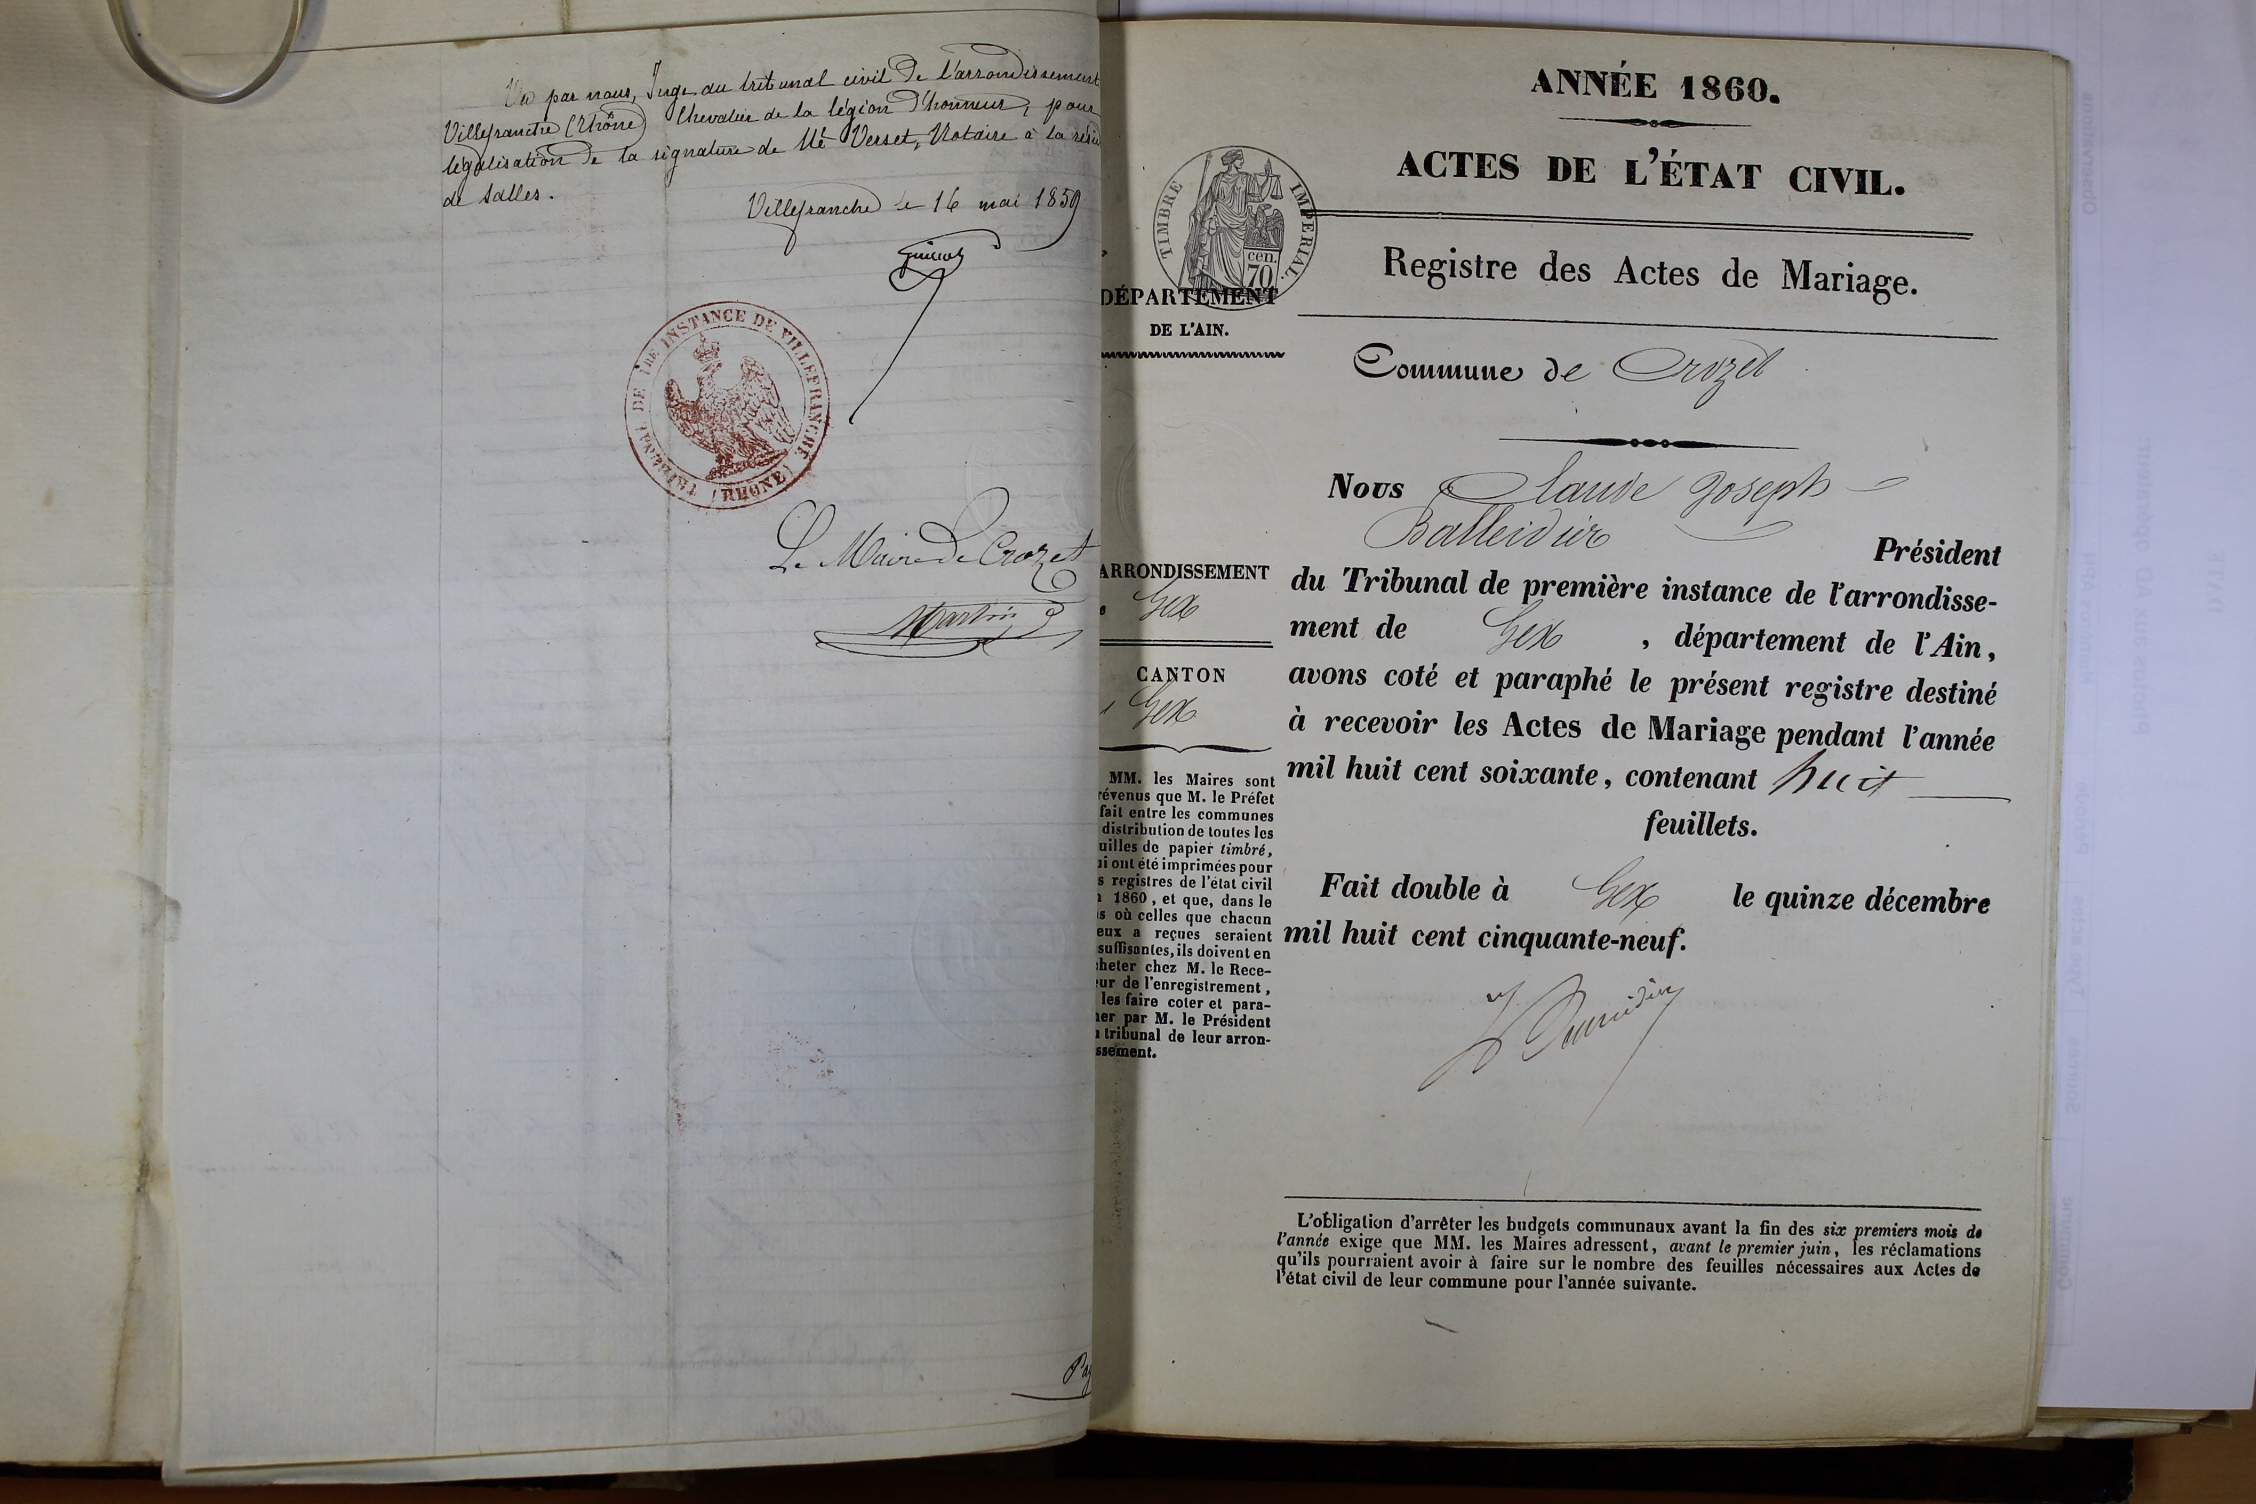 Vu par nous, Juge au tribunal civil de l'arrondissement
Villefranche (Rhône) Chevalier de la légion d'honneur, pour
légalisation de la signature de Me Verset, Notaire à la rési
de Salles.
Villefranche le 16 mai 1859
TRIBUNAL DE 1RE INSTANCE DE VILLEFRANCHE
(RHONE)
Le Maire de Crozet
Martin
ANNÉE 1860.
ACTES DE L'ÉTAT CIVIL.
TIMBRE IMPERIAL.
cen.
70
Registre des Actes de Mariage.
DÉPARTEMENT
DE L'AIN.
Commune de Crozet
Nous Claude Joseph
Balleidier
Président
du Tribunal de première instance de l'arrondisse-
ment de Gex, département de l'Ain,
avons coté et paraphé le présent registre destiné
à recevoir les Actes de Mariage pendant l'année
mil huit cent soixante, contenant huit
feuillets.
Fait double à Gex le quinze décembre
mil huit cent cinquante-neuf.
ARRONDISSEMENT
Gex
CANTON
Gex
MM. les Maires sont
révenus que M. le Préfet
fait entre les communes
distribution de toutes les
uilles de papier timbré,
ui ont été imprimées pour
s registres de l'état civil
1860, et que, dans le
s où celles que chacun
eux a reçues seraient
suffisantes, ils doivent en
cheter chez M. le Rece-
eur de l'enregistrement,
les faire coter et para-
her par M. le Président
u tribunal de leur arron-
ssement.
L'obligation d'arrêter les budgets communaux avant la fin des six premiers mois de
l'année exige que MM. les Maires adressent, avant le premier juin, les réclamations
qu'ils pourraient avoir à faire sur le nombre des feuilles nécessaires aux Actes de
l'état civil de leur commune pour l'année suivante.